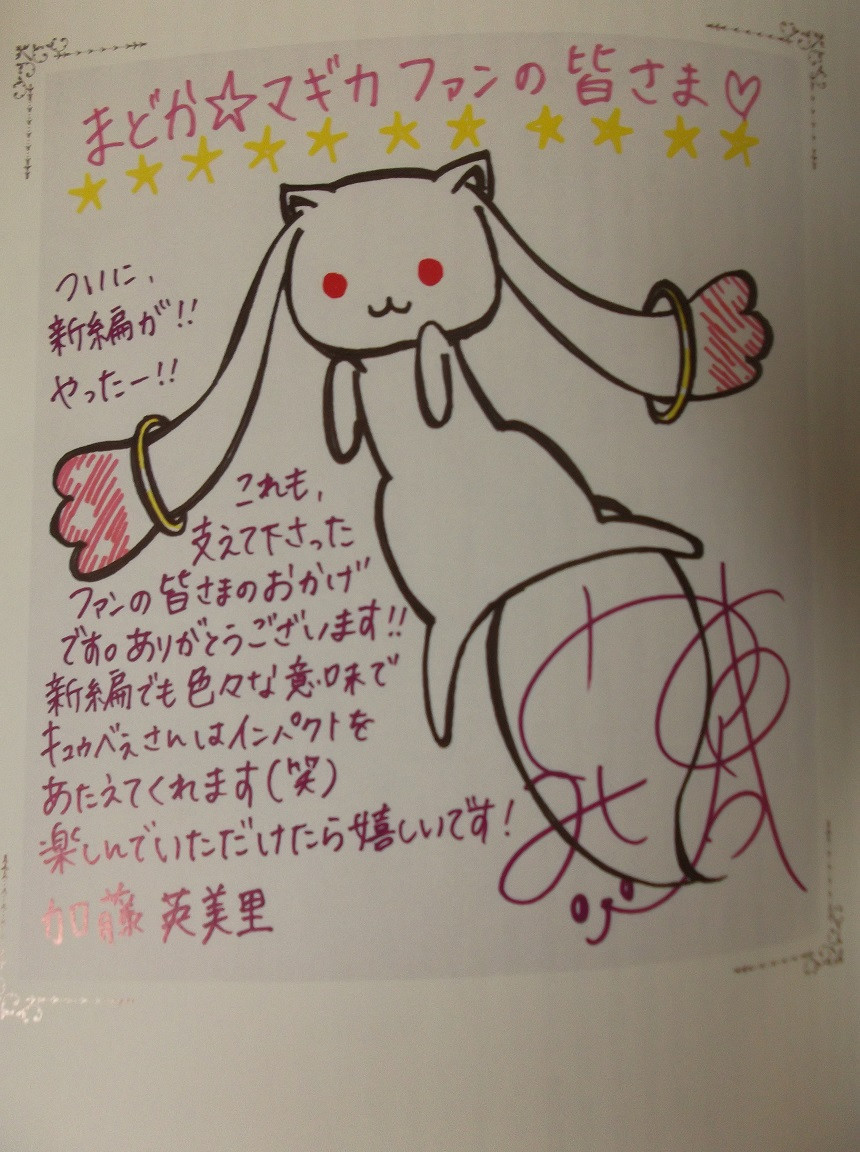 まどか☆マギカ ファンの皆さま♡
ついに、
新編が!!
やったー!!
これも、
支えて下さった
ファンの皆さまのおかげ
です。ありがとうございます!!
新編でも色々な意味で
キュゥべぇさんはインパクトを
あたえてくれます(笑)
楽しんでいただけたら嬉しいです!
加藤 英美里